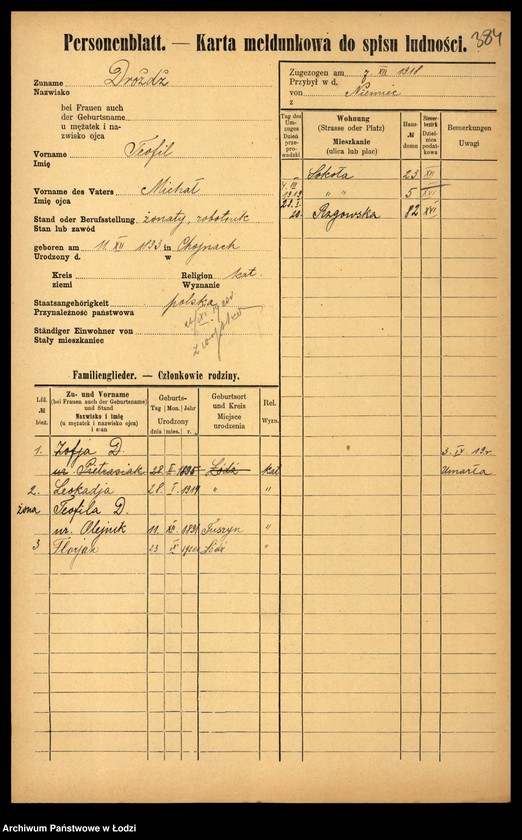 Personenblatt. — Karta meldunkowa do spisu ludności.
384
Zuname
Nazwisko
Drożdż
bei Frauen auch
der Geburtsname
u mężatek i na-
zwisko ojca
Vorname
Imię
Teofil
Vorname des Vaters
Imię ojca
Michał
Stand oder Berufsstellung
Stan lub zawód
żonaty, robotnik
geboren am 11 XII 1893 in Chojnach
Urodzony d. w
Kreis
ziemi
Religion kat.
Wyznanie
Staatsangehörigkeit
Przynależność państwowa
polska
Ständiger Einwohner von
Stały mieszkaniec
Zugezogen am 7 XII 1918
Przybył w d.
von Niemiec
z
Tag des Um-zuges
Dzień prze-prowadzki
Wohnung
(Strasse oder Platz)
Mieszkanie
(ulica lub plac)
Haus-
№
domu
Steuer-bezirk
Dziel-nica podat-kowa
Bemerkungen
Uwagi
" Sokoła 23 XVI
1919 " " 5 XVI
20. Rzgowska 82 XVI
Familienglieder. — Członkowie rodziny.
Lfd.
№
bież.
Zu- und Vorname
(bei Frauen auch der Geburtsname)
und Stand
Nazwisko i imię
(u mężatek i nazwisko ojca)
i stan
Geburts-
Tag Mon. Jahr
Urodzony
dnia mies. r.
Geburtsort
und Kreis
Miejsce
urodzenia
Rel.
Wyzn.
1. Zofja D. 3. IV 19 r.
ur. Pietrasiak 28 II 1895 Łódź kat Umarła
2. Leokadja 28 I 1919 " "
żona Teofila D.
ur. Olejnik 11 XII Tuszyn "
3 Florjan 23 IX Łódź "
Archiwum Państwowe w Łodzi